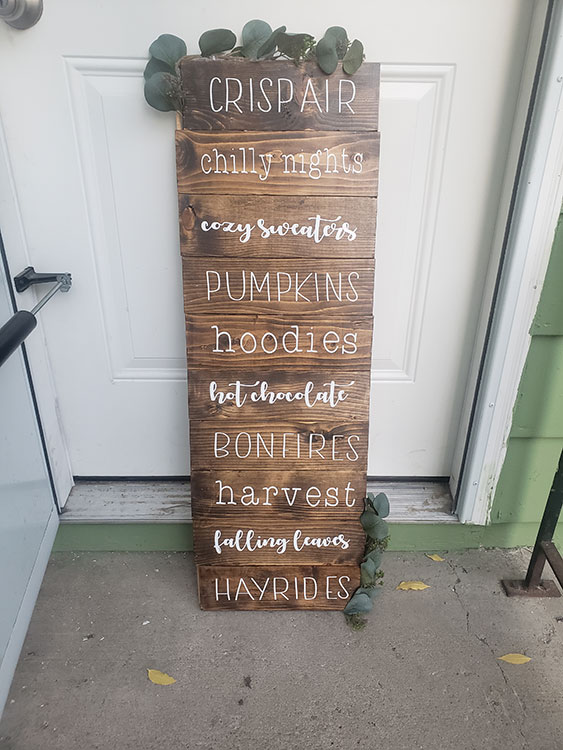 CRISPAIR
chilly nights
cozy sweaters
PUMPKINS
hoodies
hot chocolate
BONFIRES
harvest
falling leaves
HAYRIDES